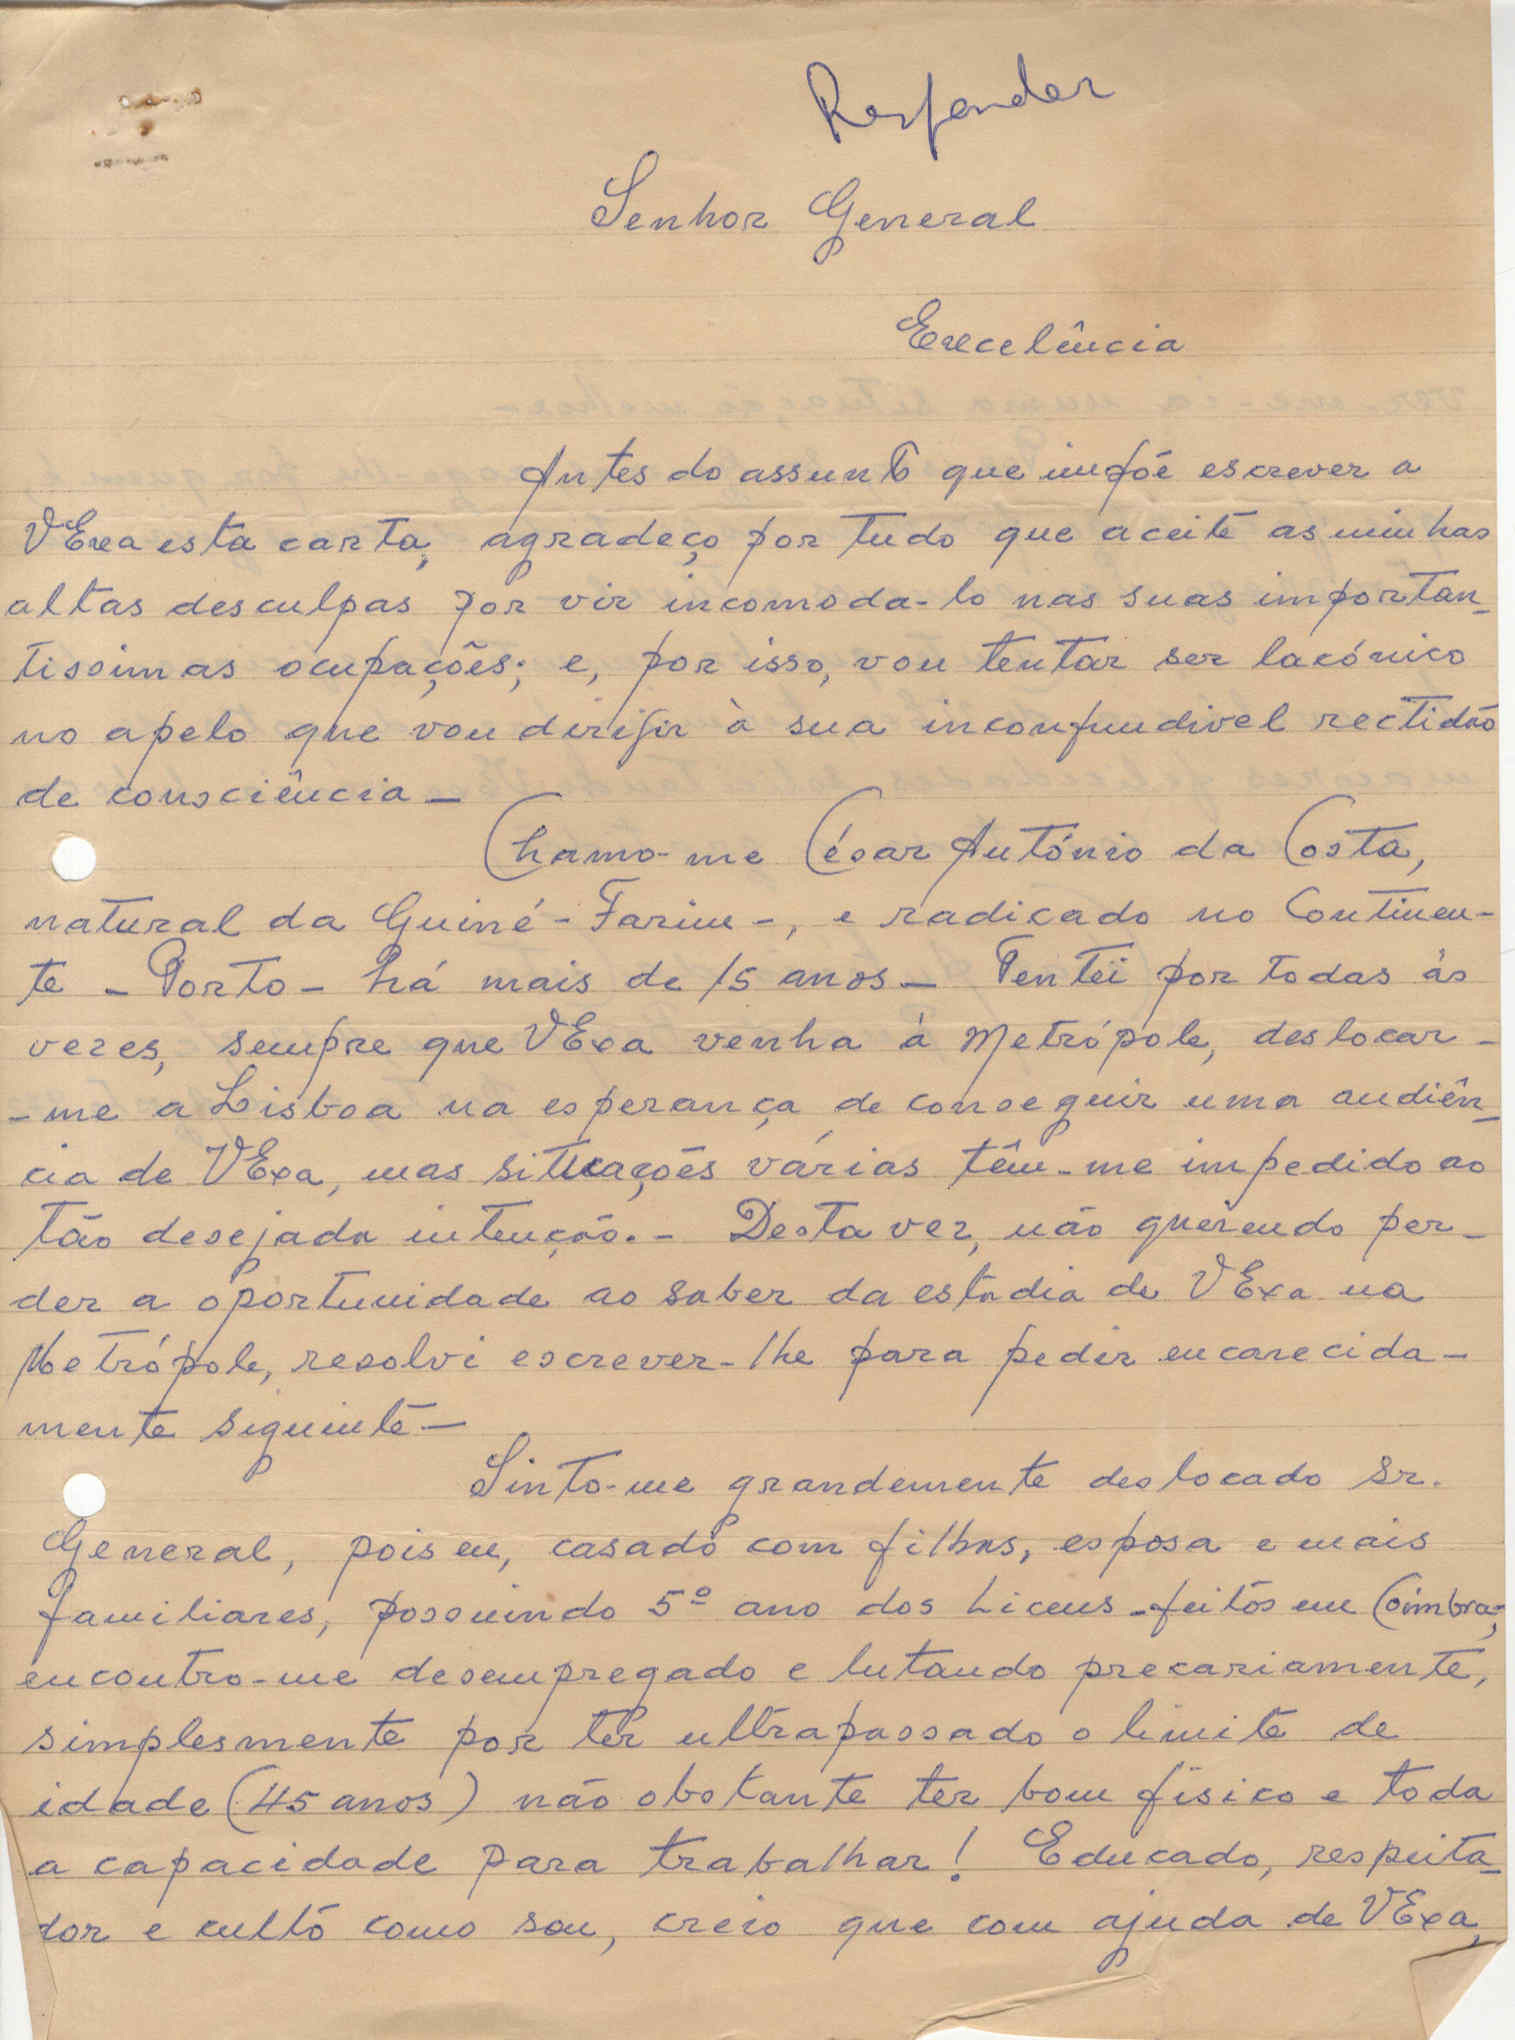 Responder
Senhor General
Excelência
Antes do assunto que impõe escrever a
VExa esta carta, agradeço por tudo que aceite as minhas
altas desculpas por vir incomoda-lo nas suas importan-
tissimas ocupações; e, por isso, vou tentar ser lacónico
no apelo que vou dirigir à sua inconfundivel rectidão
de consciência -
Chamo-me César António da Costa,
natural da Guiné - Farim -, e radicado no Continen-
te - Porto - há mais de 15 anos - Tentei por todas às
vezes, sempre que VExa venha à Metrópole, deslocar-
-me a Lisboa na esperança de conseguir uma audiên-
cia de VExa, mas situações várias têm-me impedido ao
tão desejada intenção. - Desta vez, não querendo per-
der a oportunidade ao saber da estadia de VExa na
Metrópole, resolvi escrever-lhe para pedir encarecida-
mente siguinte -
Sinto-me grandemente deslocado Sr.
General, pois eu, casado com filhos, esposa e mais
familiares, possuindo 5º ano dos Liceus - feitos em Coimbra -,
encontro-me desempregado e lutando precariamente,
simplesmente por ter ultrapassado o limite de
idade (45 anos) não obstante ter bom físico e toda
a capacidade para trabalhar! Educado, respeita-
dor e culto como sou, creio que com ajuda de VExa,